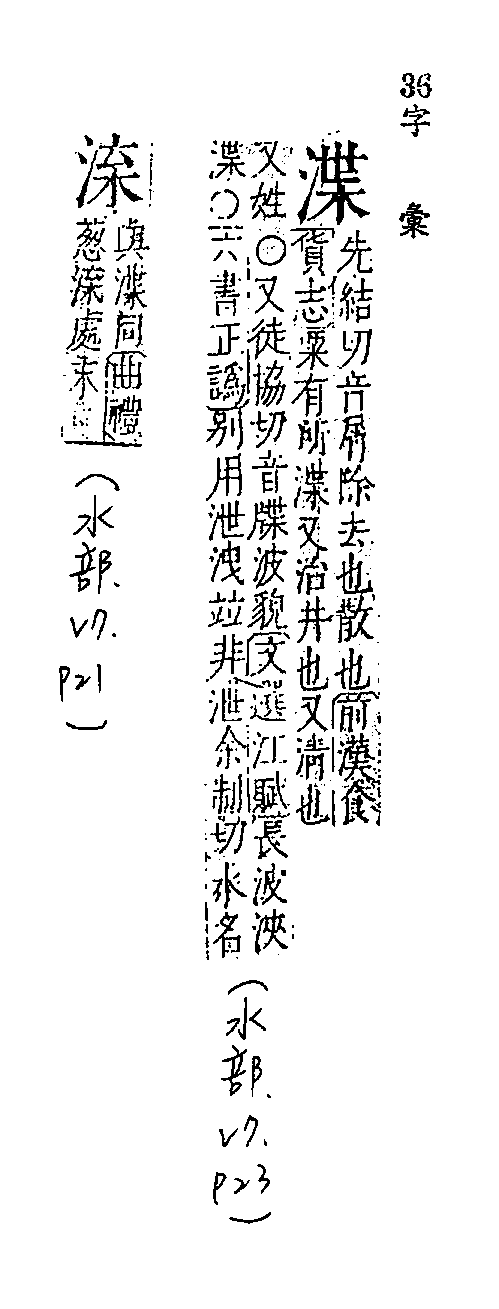 36字　彙
渫
先結切音屑除去也散也前漢食
貨志粟有所渫又治井也又清也
又姓〇又徒協切音牒波貌文選江賦長波浹
渫〇六書正譌別用泄洩竝非泄余制切水名
(水部.V7.P23)
㴇
與渫同曲禮
葱㴇處末
(水部.V7.P21)